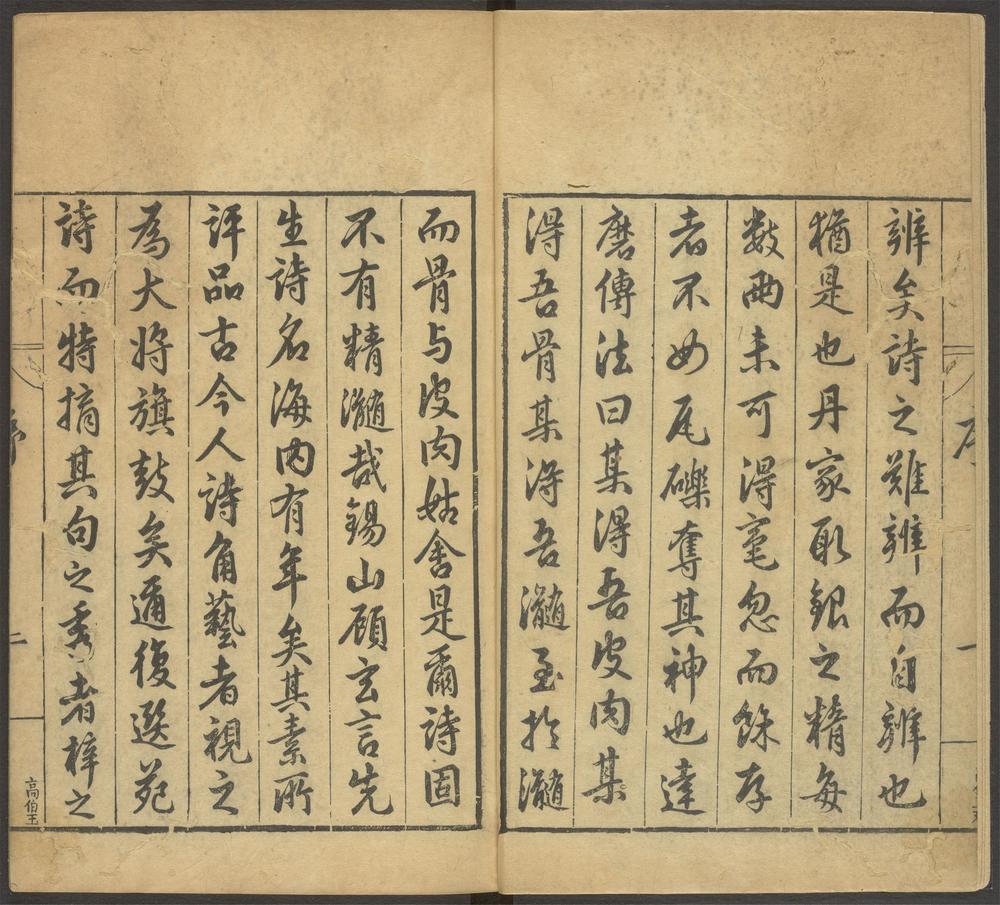 一
辨矣詩之難辨而自辨也
猶是也丹家取銀之精每
數兩未可得毫忽而餘存
者不如瓦礫奪其神也達
磨傳法曰某得吾皮肉某
得吾骨某得吾髓至於髓
而骨与皮肉姑舍是爾詩固
不有精髓哉錫山顧玄言先
生詩名海内有年矣其素所
評品古今人詩角藝者視之
為大將旗鼓矣邇復選苑
詩而特摘其句之秀者梓之
二
高伯玉